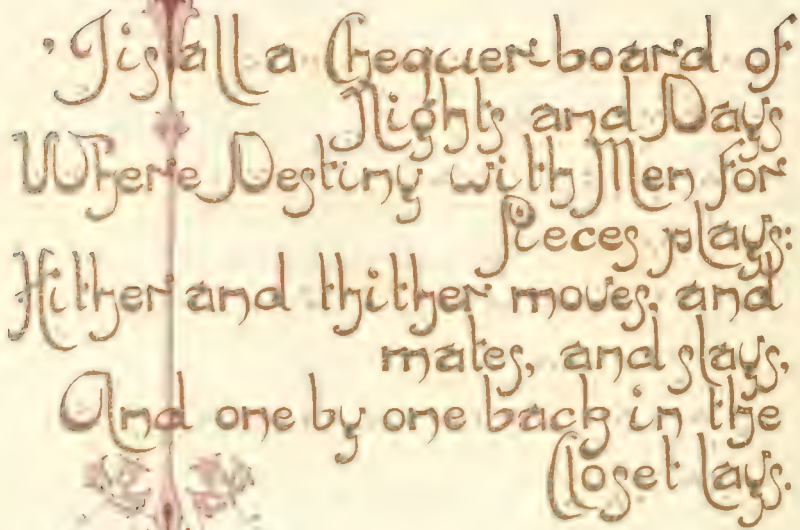 'Tis all a Chequer-board of
Nights and Days
Where Destiny with Men for
Pieces plays:
Hither and thither moves, and
mates, and slays,
And one by one back in the
Closet lays.